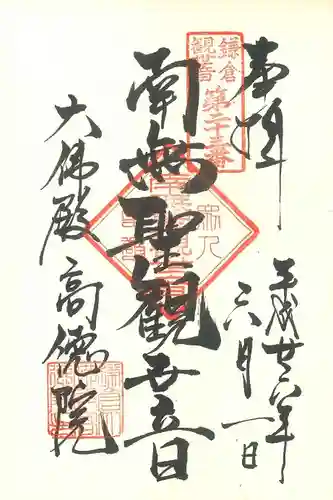 奉拝
鎌倉
観世音
第二十三番
平成廿六年
六月一日
南無聖観世音
大佛殿 高徳院